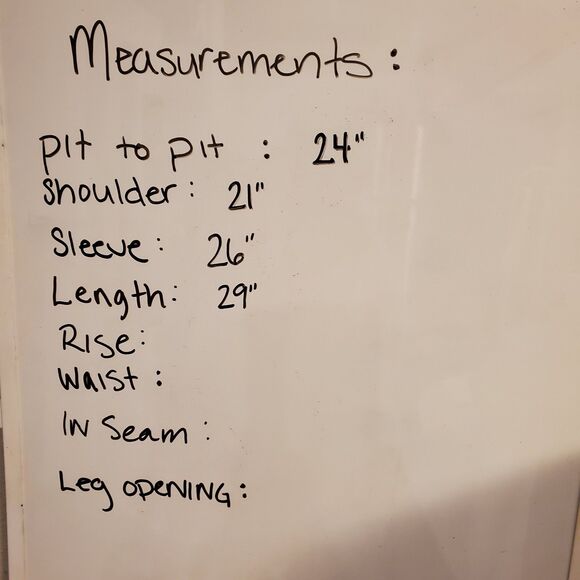 Measurements:
pit to pit : 24"
Shoulder: 21"
Sleeve: 26"
Length: 29"
Rise:
Waist:
In Seam:
Leg OPENING: